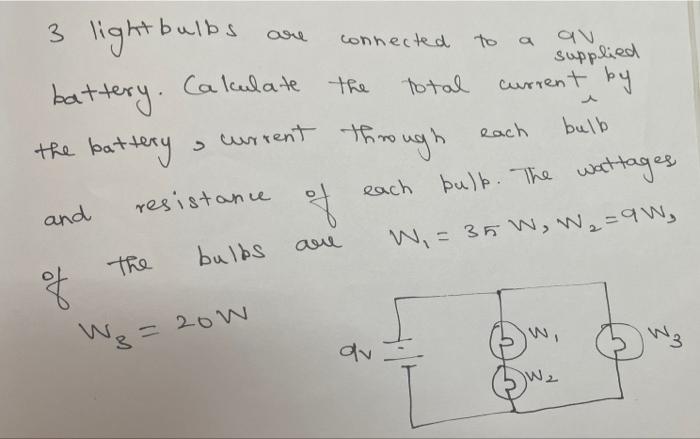 3 lightbulbs are connected to a 9V
battery. Calculate the total current supplied by
the battery, current through each bulb
and resistance of each bulb. The wattages
of the bulbs are W₁ = 35 W, W₂ = 9W,
W₃ = 20W
9v
W₁
W₂
W₃